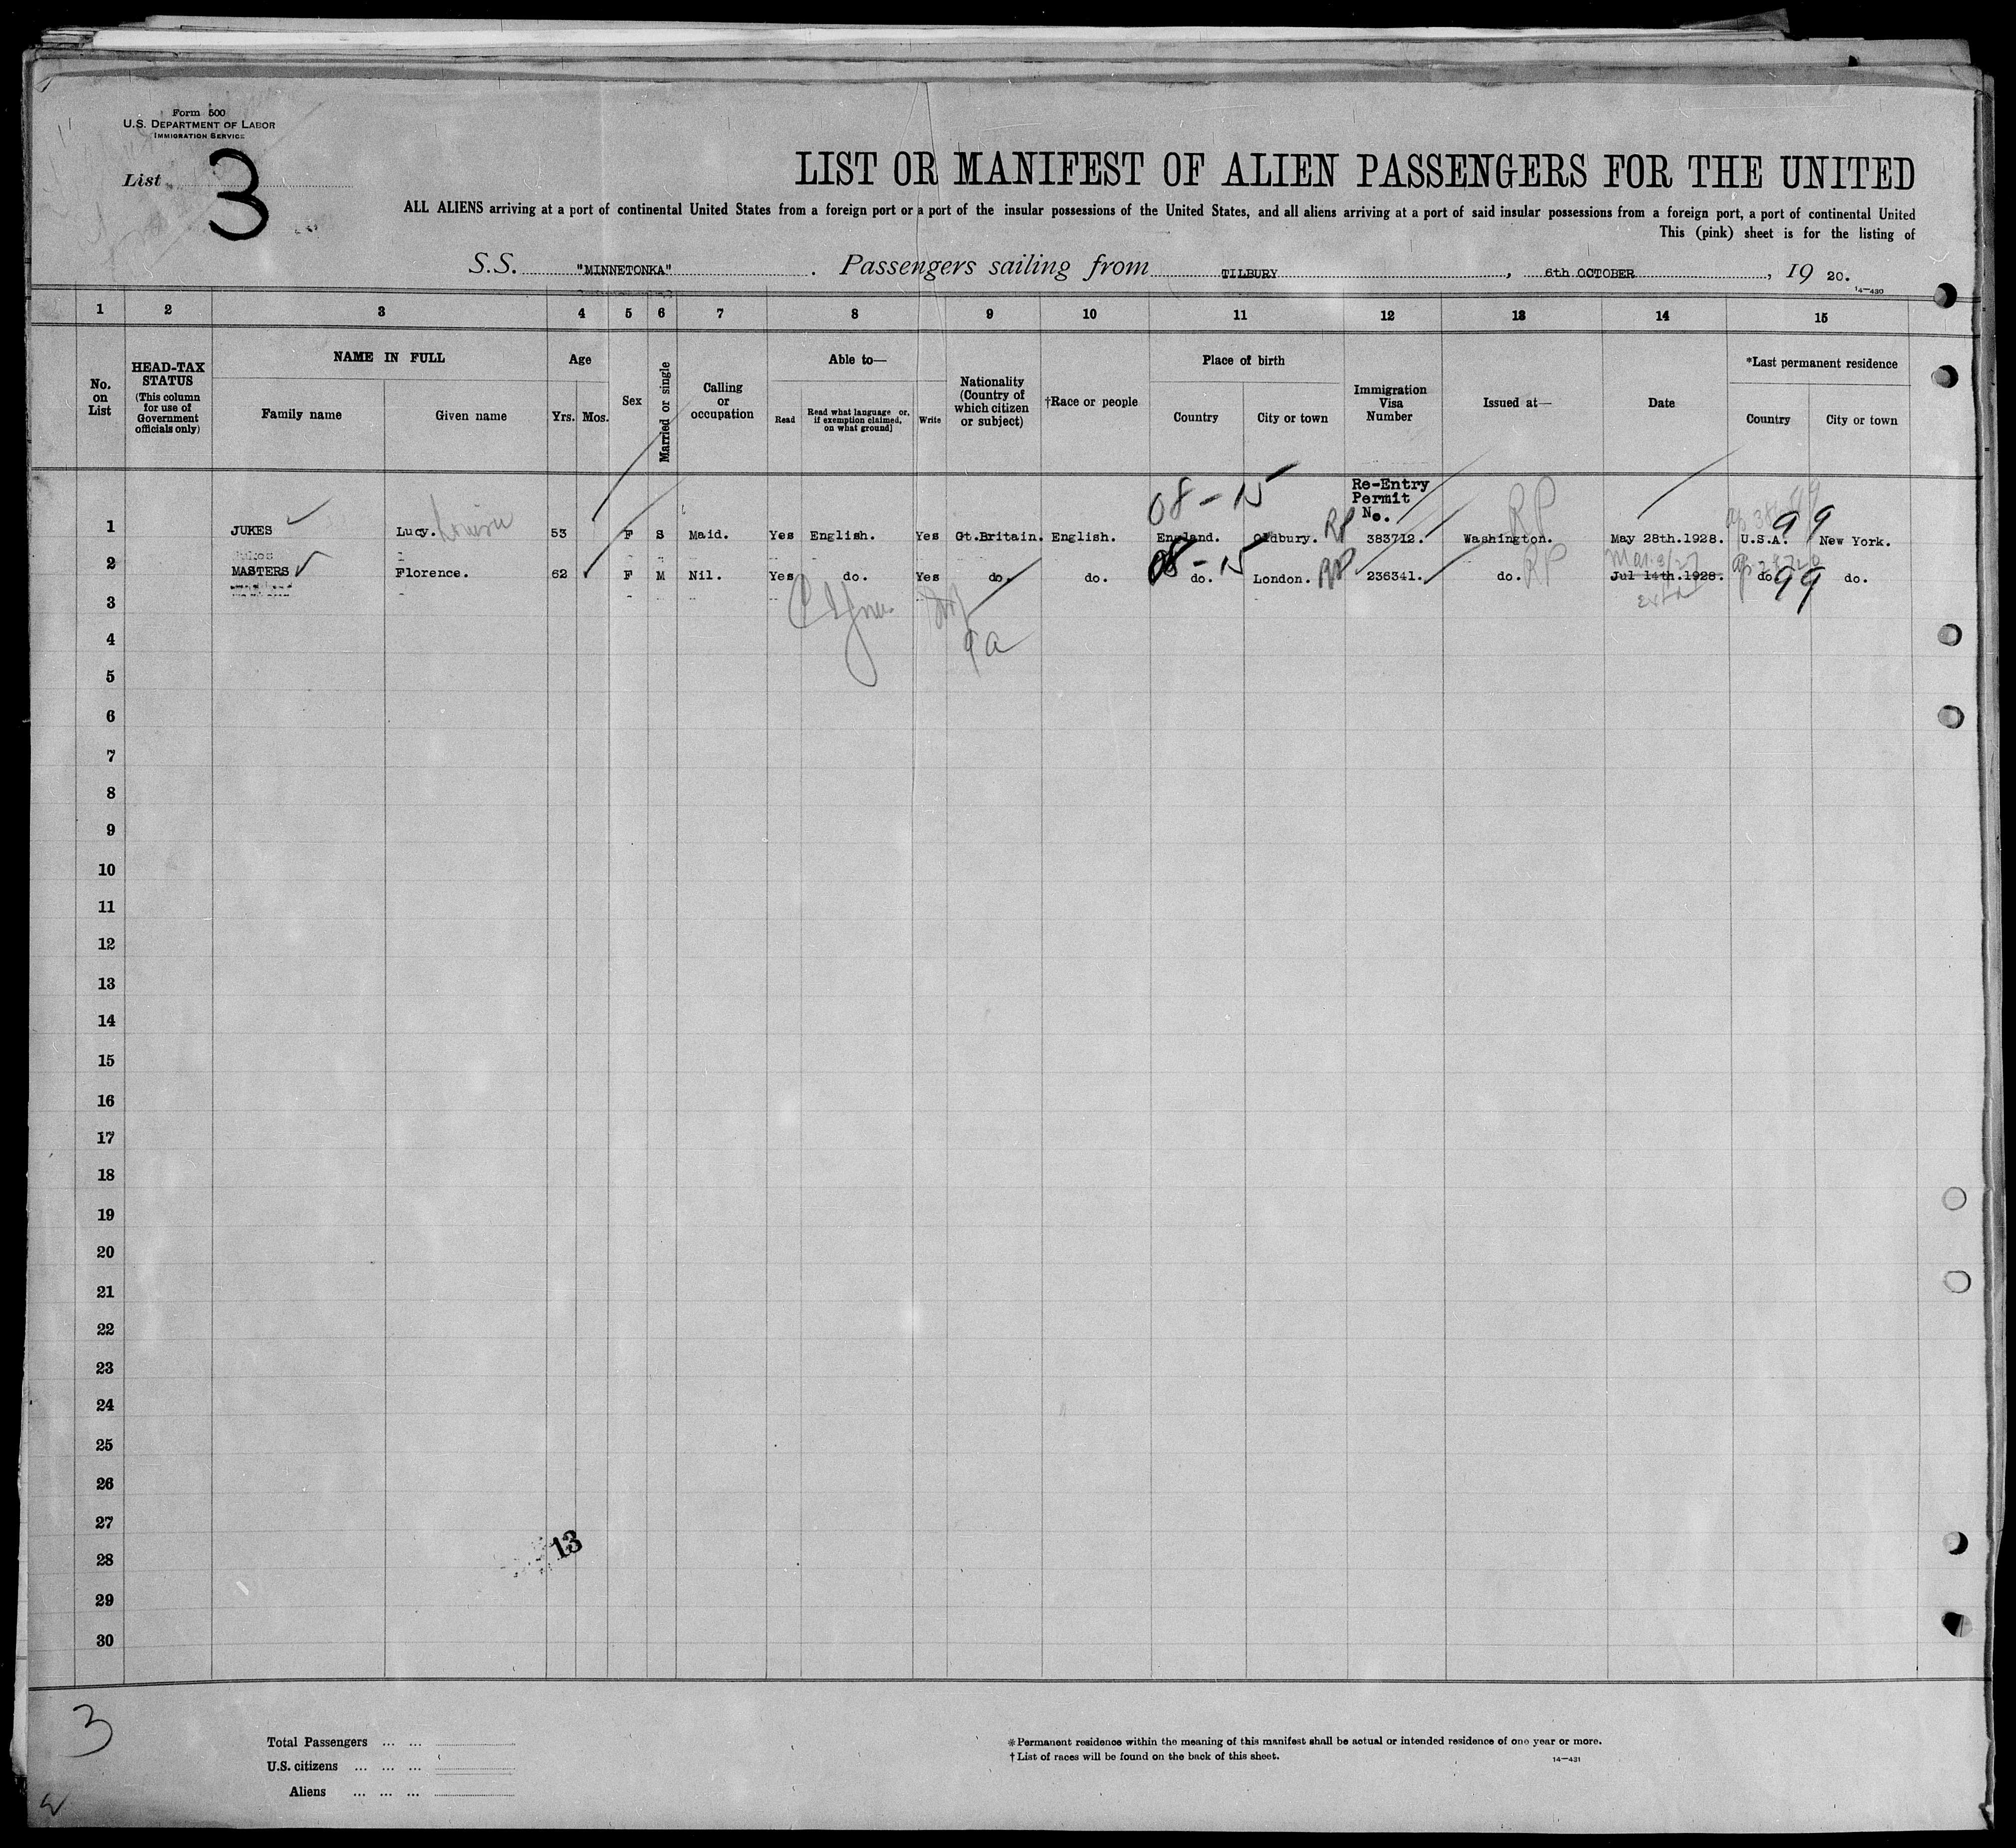 Form 500
U.S. DEPARTMENT OF LABOR
IMMIGRATION SERVICE
List 3
LIST OR MANIFEST OF ALIEN PASSENGERS FOR THE UNITED
ALL ALIENS arriving at a port of continental United States from a foreign port or a port of the insular possessions of the United States, and all aliens arriving at a port of said insular possessions from a foreign port, a port of continental United
This (pink) sheet is for the listing of
S.S. "MINNETONKA". Passengers sailing from TILBURY, 6th OCTOBER, 19 20.
14—430
1 2 3 4 5 6 7 8 9 10 11 12 13 14 15
No. on List
HEAD-TAX STATUS (This column for use of Government officials only)
NAME IN FULL
Family name
Given name
Age
Yrs. Mos.
Sex
Married or single
Calling or occupation
Able to—
Read
Read what language or, if exemption claimed, on what ground]
Write
Nationality (Country of which citizen or subject)
†Race or people
Place of birth
Country
City or town
Immigration Visa Number
Issued at—
Date
*Last permanent residence
Country
City or town
08 - 15
Re-Entry Permit No.
RP
99
1 JUKES Lucy. Louisa 53 F S Maid. Yes English. Yes Gt.Britain. English. England. Oldbury. RP 383712. Washington. May 28th.1928. U.S.A. New York.
08 - 15
2 MASTERS Florence. 62 F M Nil. Yes do. Yes do. do. do. London. RP 236341. do. RP Jul 14th.1928. do. 99 do.
3
9a
4
5
6
7
8
9
10
11
12
13
14
15
16
17
18
19
20
21
22
23
24
25
26
27
13
28
29
30
3
Total Passengers ... ...
U.S. citizens ... ... ...
Aliens ... ... ...
*Permanent residence within the meaning of this manifest shall be actual or intended residence of one year or more.
†List of races will be found on the back of this sheet.
14—431